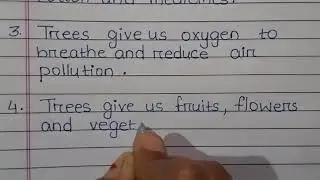 3. Trees give us oxygen to
breathe and reduce air
pollution.
4. Trees give us fruits, flowers
and veget